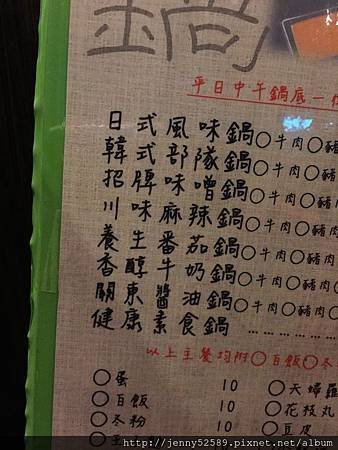 鍋
平日中午鍋底一
日式風味鍋〇牛肉〇豬
韓式部隊鍋〇牛肉〇豬
招牌味噌鍋〇牛肉〇豬
川味麻辣鍋〇牛肉〇豬
養生番茄鍋〇牛肉〇豬
香醇牛奶鍋〇牛肉〇豬
關東醬油鍋〇牛肉〇豬
健康素食鍋 ………
以上主餐均附〇白飯〇冬
〇蛋 10 〇天婦羅
〇白飯 10 〇花枝丸
〇冬粉 10 〇豆皮
http://jenny52589.pixnet.net/album